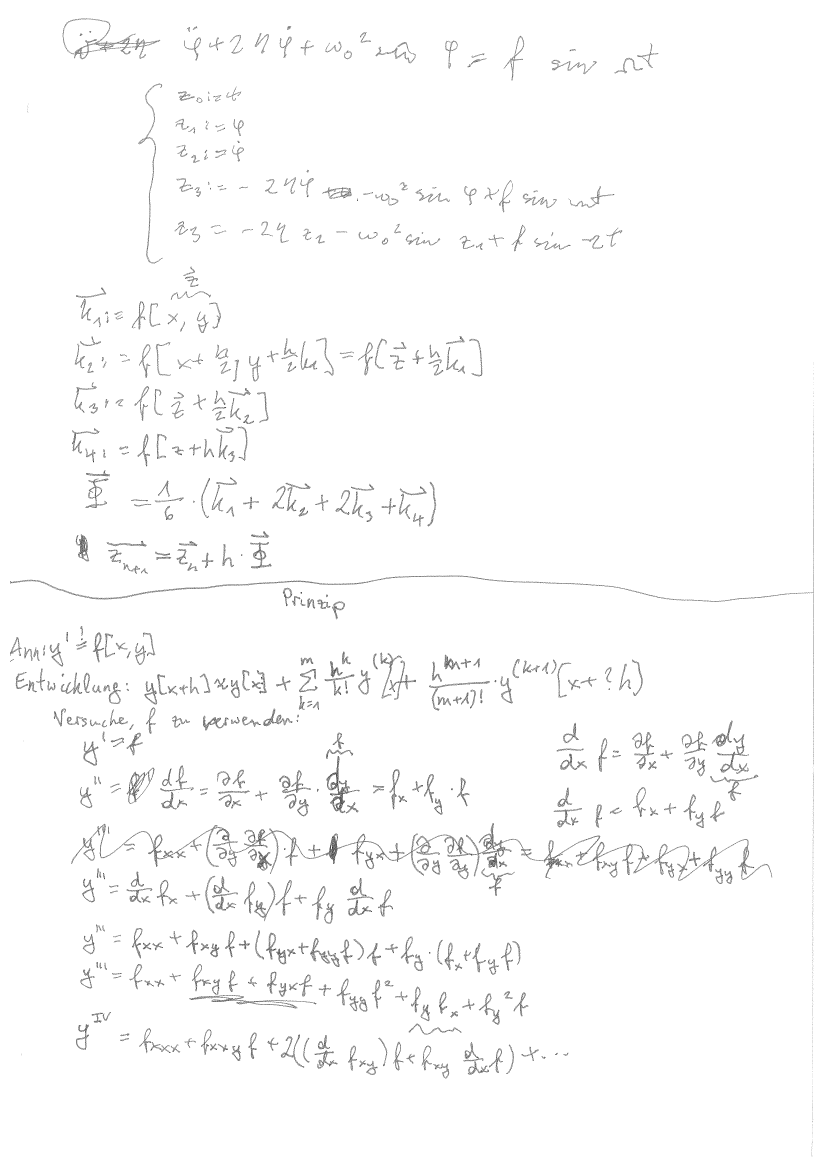 φ̈ + 2 η φ̇ + ω₀² sin φ = f sin Ωt
z₀ := t
z₁ := φ
z₂ := φ̇
z₃ := - 2 η φ̇ - ω₀² sin φ + f sin Ωt
z₃ = - 2 η z₂ - ω₀² sin z₁ + f sin Ωt
z⃗
k⃗₁ := f[x, y]
k⃗₂ := f[x + h/2, y + h/2 k₁] = f[z⃗ + h/2 k⃗₁]
k⃗₃ := f[z⃗ + h/2 k⃗₂]
k⃗₄ := f[z + h k⃗₃]
Φ⃗ = 1/6 · (k⃗₁ + 2k⃗₂ + 2k⃗₃ + k⃗₄)
z⃗ₙ₊₁ = z⃗ₙ + h · Φ⃗
Prinzip
Ann: y' != f[x, y]
Entwicklung: y[x+h] ≈ y[x] + Σ_{k=1}^{m} h^k/k! y^(k)[x] + h^(m+1)/(m+1)! · y^(k+1)[x + ? h]
Versuche, f zu verwenden:
y' = f
y'' = df/dx = ∂f/∂x + ∂f/∂y · dy/dx = f_x + f_y · f
d/dx f = ∂f/∂x + ∂f/∂y dy/dx
f
d/dx f = f_x + f_y f
y''' = d/dx f_x + (d/dx f_y) f + f_y d/dx f
y''' = f_xx + f_xy f + (f_yx + f_yy f) f + f_y · (f_x + f_y f)
y''' = f_xx + f_xy f + f_yx f + f_yy f² + f_y f_x + f_y² f
y^IV = f_xxx + f_xxy f + 2((d/dx f_xy) f + f_xy d/dx f) + ...